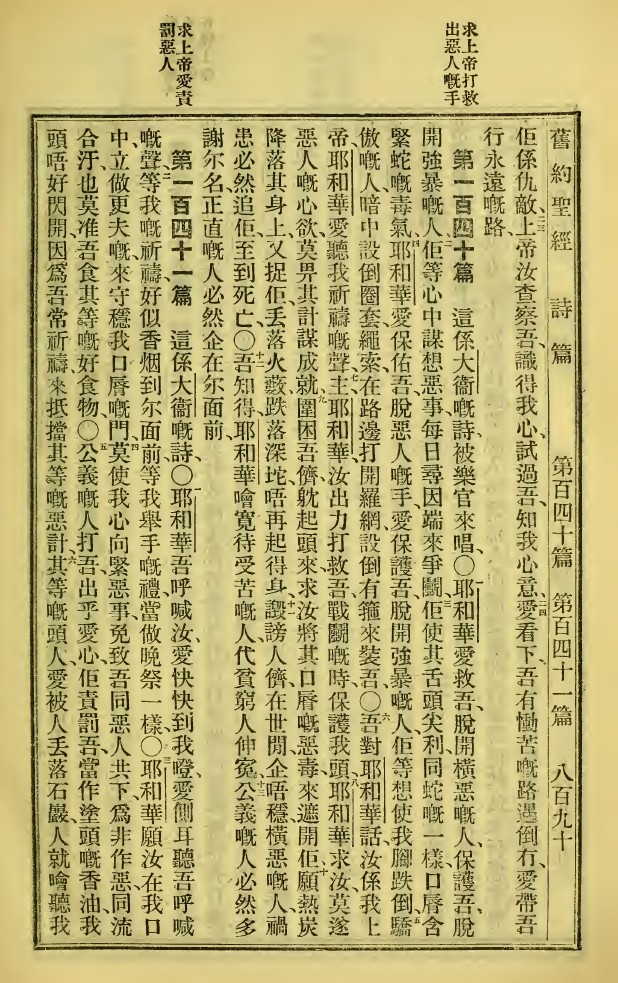 求上帝打救
出惡人嘅手
求上帝愛責
罰惡人
舊約聖經 詩篇 第百四十篇 第百四十一篇 八百九十
佢係仇敵、二三上帝汝查察吾、識得我心、試過吾、知我心意、二四愛看下、吾有慟苦嘅路遇倒冇、愛帶吾
行永遠嘅路、
第一百四十篇 這係大衞嘅詩、被樂官來唱、〇一耶和華愛救吾、脫開橫惡嘅人、保護吾、脫
開強暴嘅人、二佢等心中謀想惡事、每日尋因端來爭鬬、三佢使其舌頭尖利、同蛇嘅一樣、口唇含
緊蛇嘅毒氣、四耶和華愛保佑吾、脫惡人嘅手、愛保護吾、脫開強暴嘅人、佢等想使我腳跌倒、五驕
傲嘅人、暗中設倒圈套繩索、在路邊打開羅網、設倒有箍來裝吾、〇六吾對耶和華話、汝係我上
帝、耶和華愛聽我祈禱嘅聲、七主耶和華、汝出力打救吾、戰鬬嘅時保護我頭、八耶和華求汝、莫遂
惡人嘅心欲、莫畀其計謀成就、九圍困吾儕躭起頭來、求汝將其口唇嘅惡毒來遮開佢、十願熱炭
降落其身上、又捉佢丟落火藪、跌落深坨、唔再起得身、十一譭謗人儕在世閒企唔穩、橫惡嘅人、禍
患必然追佢、至到死亡、〇十二吾知得、耶和華噲寬待受苦嘅人、代貧窮人伸寃、十三公義嘅人、必然多
謝尔名、正直嘅人、必然企在尔面前、
第一百四十一篇 這係大衞嘅詩、〇一耶和華吾呼喊汝、愛快快到我㘋、愛側耳聽吾呼喊
嘅聲、二等我嘅祈禱、好似香烟到尔面前、等我舉手嘅禮、當做晚祭一樣、〇三耶和華願汝在我口
中立做更夫嘅、來守穩我口唇嘅門、四莫使我心向緊惡事、免致吾同惡人共下爲非作惡、同流
合汙、也莫准吾食其等嘅好食物、〇五公義嘅人打吾、出乎愛心、佢責罰吾、當作塗頭嘅香油、我
頭唔好閃開、因爲吾常祈禱、來抵擋其等嘅惡計、六其等嘅頭人、愛被人丟落石巖、人就噲聽我